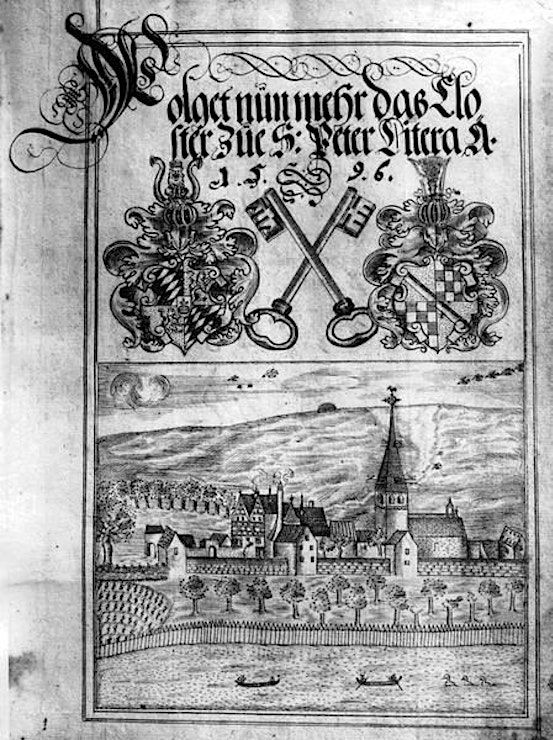 Volget nůn mehr das Clo,
ster Zůe S: Peter Litera A.
1.5.9.6.